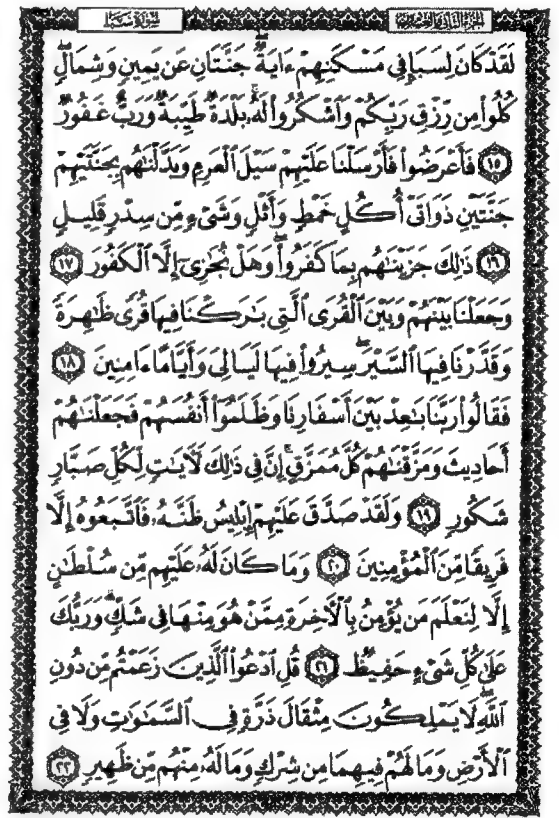 الجزء الثاني والعشرون
سورة سبإ
لَقَدْ كَانَ لِسَبَإٍ فِي مَسْكَنِهِمْ ءَايَةٌ ۖ جَنَّتَانِ عَن يَمِينٍ وَشِمَالٍ ۖ
كُلُوا۟ مِن رِّزْقِ رَبِّكُمْ وَٱشْكُرُوا۟ لَهُۥ ۚ بَلْدَةٌ طَيِّبَةٌ وَرَبٌّ غَفُورٌ
١٥ فَأَعْرَضُوا۟ فَأَرْسَلْنَا عَلَيْهِمْ سَيْلَ ٱلْعَرِمِ وَبَدَّلْنَـٰهُم بِجَنَّتَيْهِمْ
جَنَّتَيْنِ ذَوَاتَىْ أُكُلٍ خَمْطٍ وَأَثْلٍ وَشَىْءٍ مِّن سِدْرٍ قَلِيلٍ
١٦ ذَٰلِكَ جَزَيْنَـٰهُم بِمَا كَفَرُوا۟ ۖ وَهَلْ نُجَـٰزِىٓ إِلَّا ٱلْكَفُورَ ١٧
وَجَعَلْنَا بَيْنَهُمْ وَبَيْنَ ٱلْقُرَى ٱلَّتِى بَـٰرَكْنَا فِيهَا قُرًى ظَـٰهِرَةً
وَقَدَّرْنَا فِيهَا ٱلسَّيْرَ ۖ سِيرُوا۟ فِيهَا لَيَالِىَ وَأَيَّامًا ءَامِنِينَ ١٨
فَقَالُوا۟ رَبَّنَا بَـٰعِدْ بَيْنَ أَسْفَارِنَا وَظَلَمُوٓا۟ أَنفُسَهُمْ فَجَعَلْنَـٰهُمْ
أَحَادِيثَ وَمَزَّقْنَـٰهُمْ كُلَّ مُمَزَّقٍ ۚ إِنَّ فِى ذَٰلِكَ لَـَٔايَـٰتٍ لِّكُلِّ صَبَّارٍ
شَكُورٍ ١٩ وَلَقَدْ صَدَّقَ عَلَيْهِمْ إِبْلِيسُ ظَنَّهُۥ فَٱتَّبَعُوهُ إِلَّا
فَرِيقًا مِّنَ ٱلْمُؤْمِنِينَ ٢٠ وَمَا كَانَ لَهُۥ عَلَيْهِم مِّن سُلْطَـٰنٍ
إِلَّا لِنَعْلَمَ مَن يُؤْمِنُ بِٱلْـَٔاخِرَةِ مِمَّنْ هُوَ مِنْهَا فِى شَكٍّ ۗ وَرَبُّكَ
عَلَىٰ كُلِّ شَىْءٍ حَفِيظٌ ٢١ قُلِ ٱدْعُوا۟ ٱلَّذِينَ زَعَمْتُم مِّن دُونِ
ٱللَّهِ ۖ لَا يَمْلِكُونَ مِثْقَالَ ذَرَّةٍ فِى ٱلسَّمَـٰوَٰتِ وَلَا فِى
ٱلْأَرْضِ وَمَا لَهُمْ فِيهِمَا مِن شِرْكٍ وَمَا لَهُۥ مِنْهُم مِّن ظَهِيرٍ ٢٢